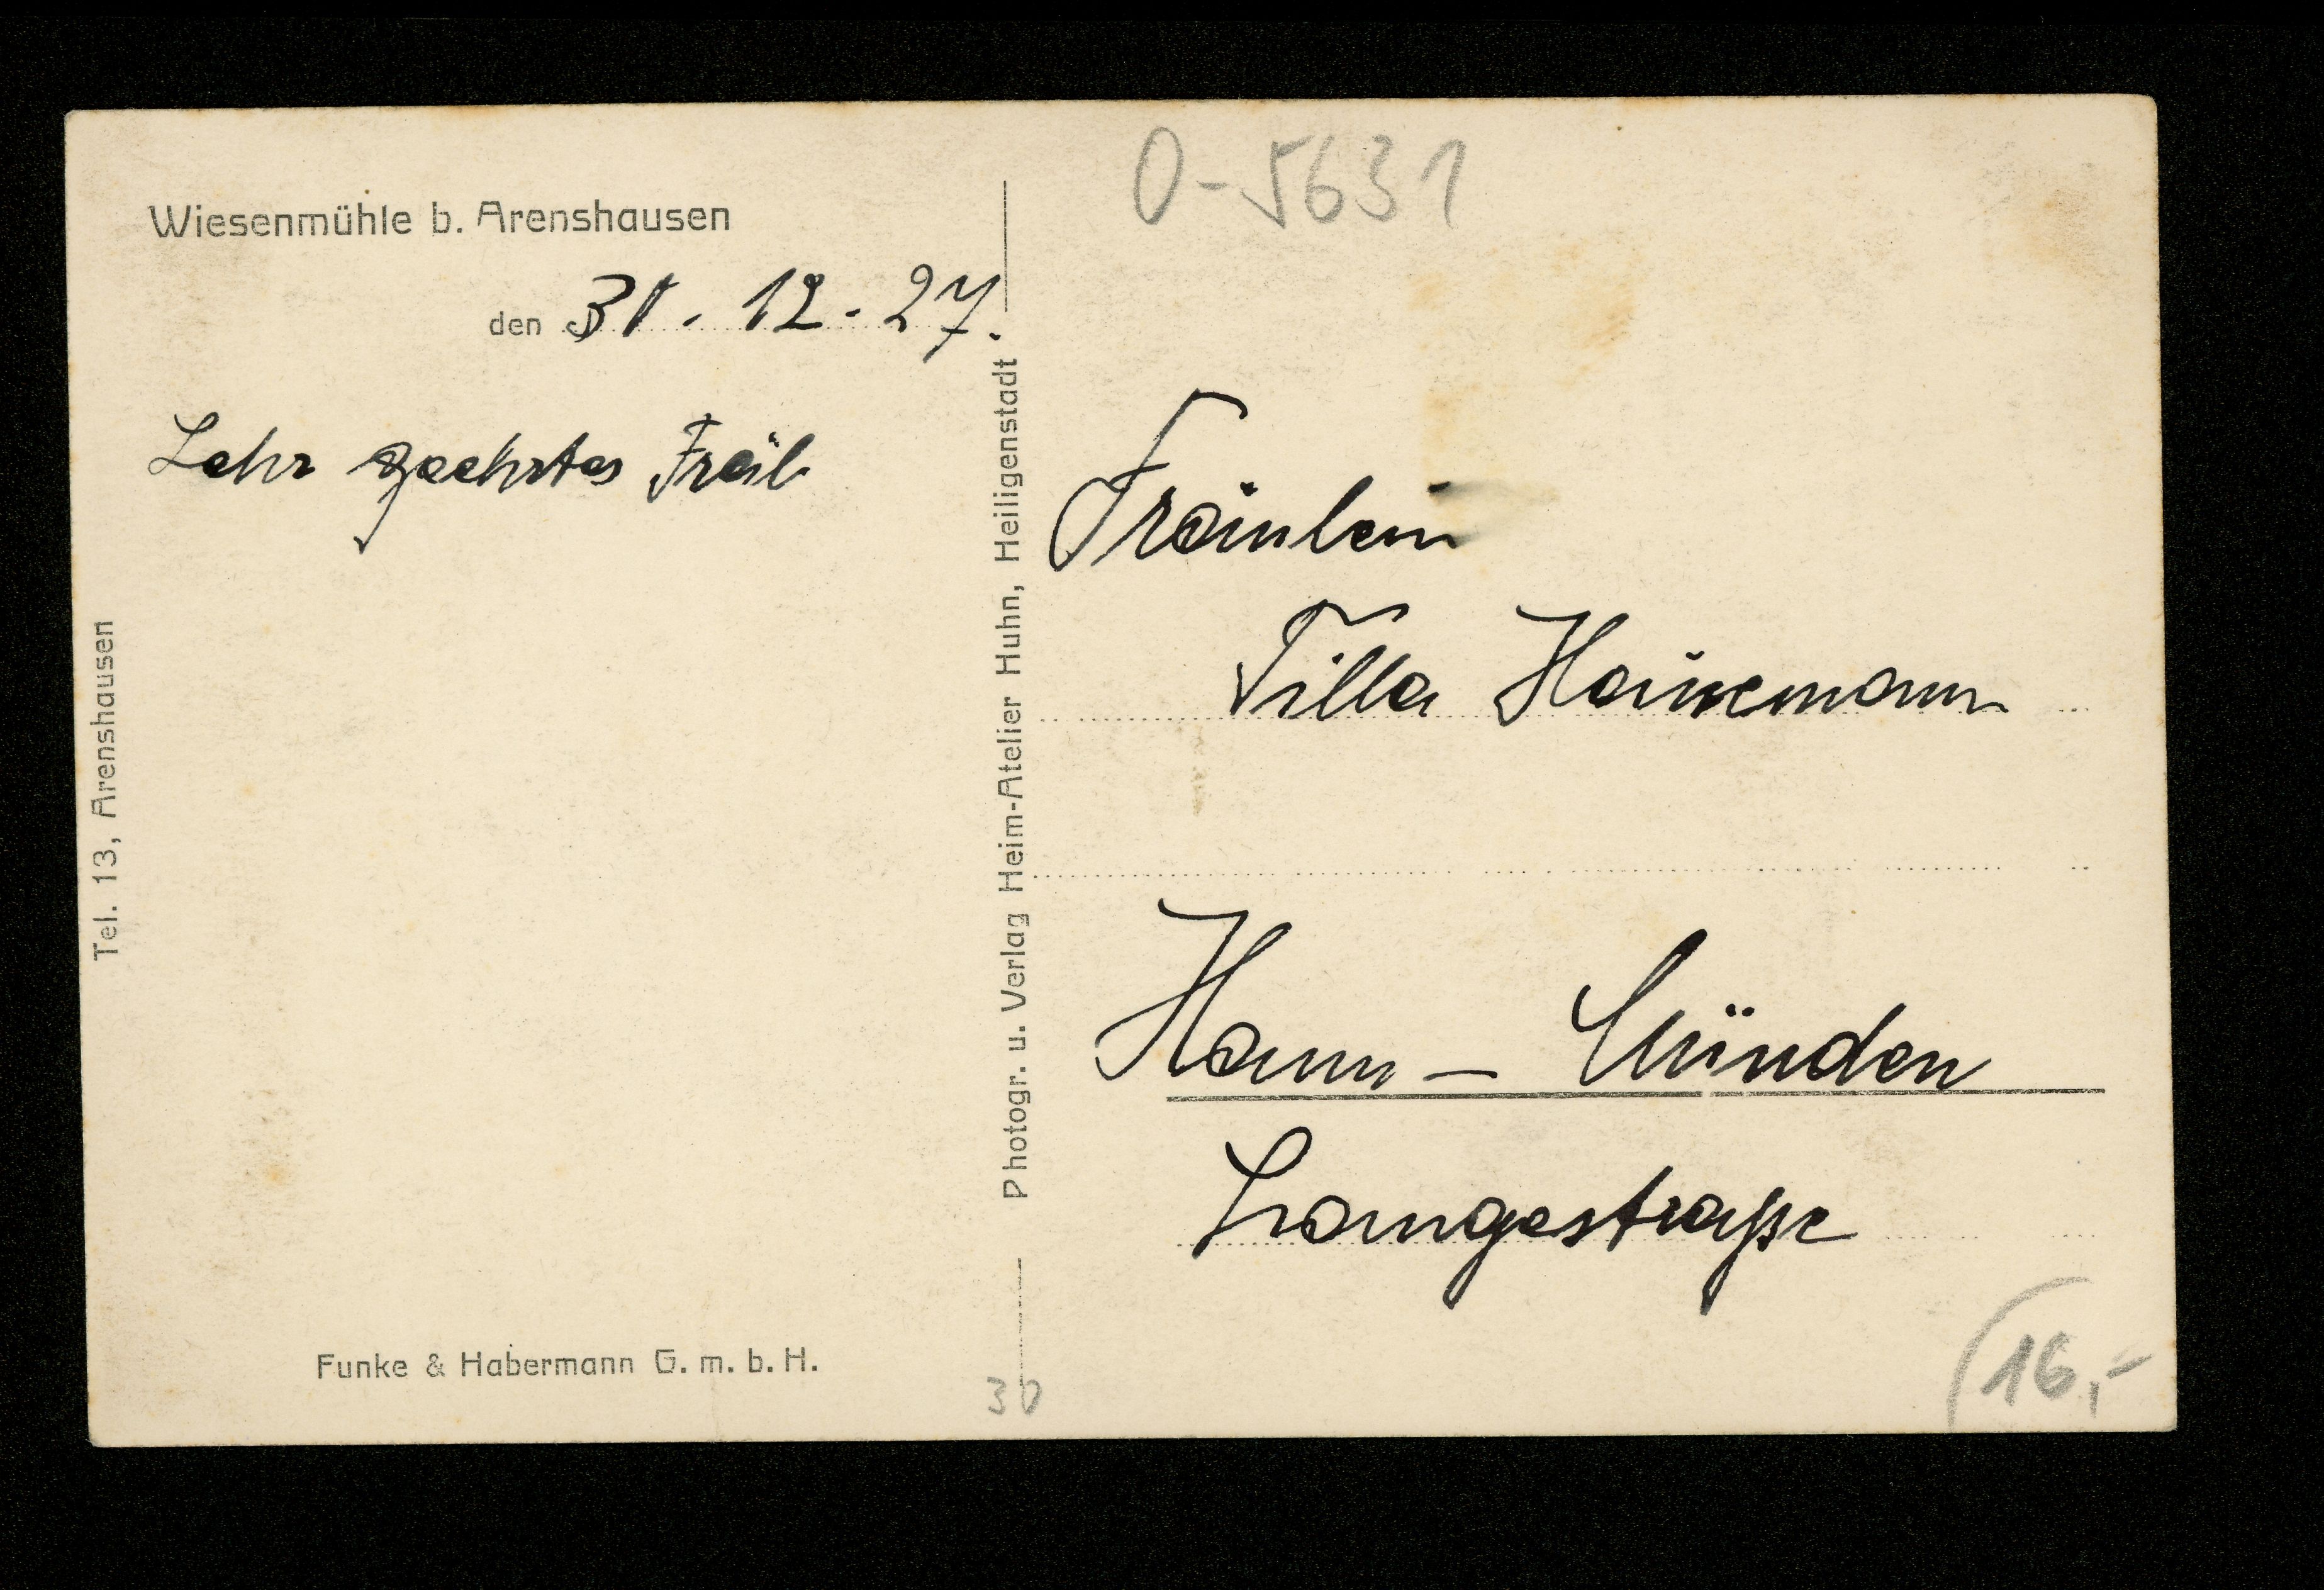 Wiesenmühle b. Arenshausen
den 31. 12. 27.
Sehr geehrtes Fräul.
Tel. 13, Arenshausen
Funke & Habermann G. m. b. H.
Photogr. u. Verlag Heim-Atelier Huhn, Heiligenstadt
30
O-5631
Fräulein
Tilla Heinemann
Hann - Münden
Langestraße
16,-